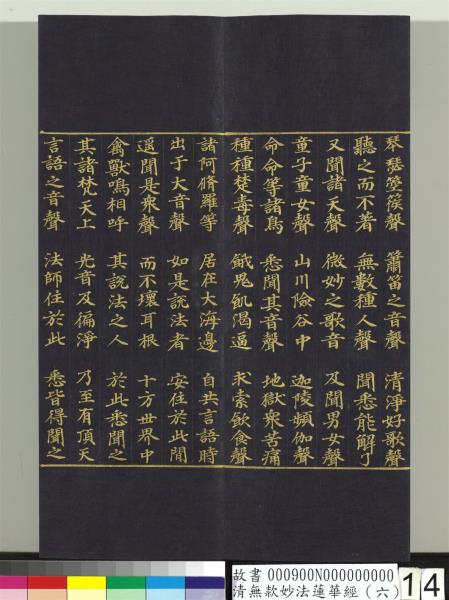 琴瑟箜篌聲 簫笛之音聲 清淨好歌聲
聽之而不著 無數種人聲 聞悉能解了
又聞諸天聲 微妙之歌音 及聞男女聲
童子童女聲 山川險谷中 迦陵頻伽聲
命命等諸鳥 悉聞其音聲 地獄眾苦痛
種種楚毒聲 餓鬼飢渴逼 求索飲食聲
諸阿脩羅等 居在大海邊 自共言語時
出于大音聲 如是說法者 安住於此間
遙聞是眾聲 而不壞耳根 十方世界中
禽獸鳴相呼 其說法之人 於此悉聞之
其諸梵天上 光音及徧淨 乃至有頂天
言語之音聲 法師住於此 悉皆得聞之
故書 000900N000000000
清無款妙法蓮華經（六）
14